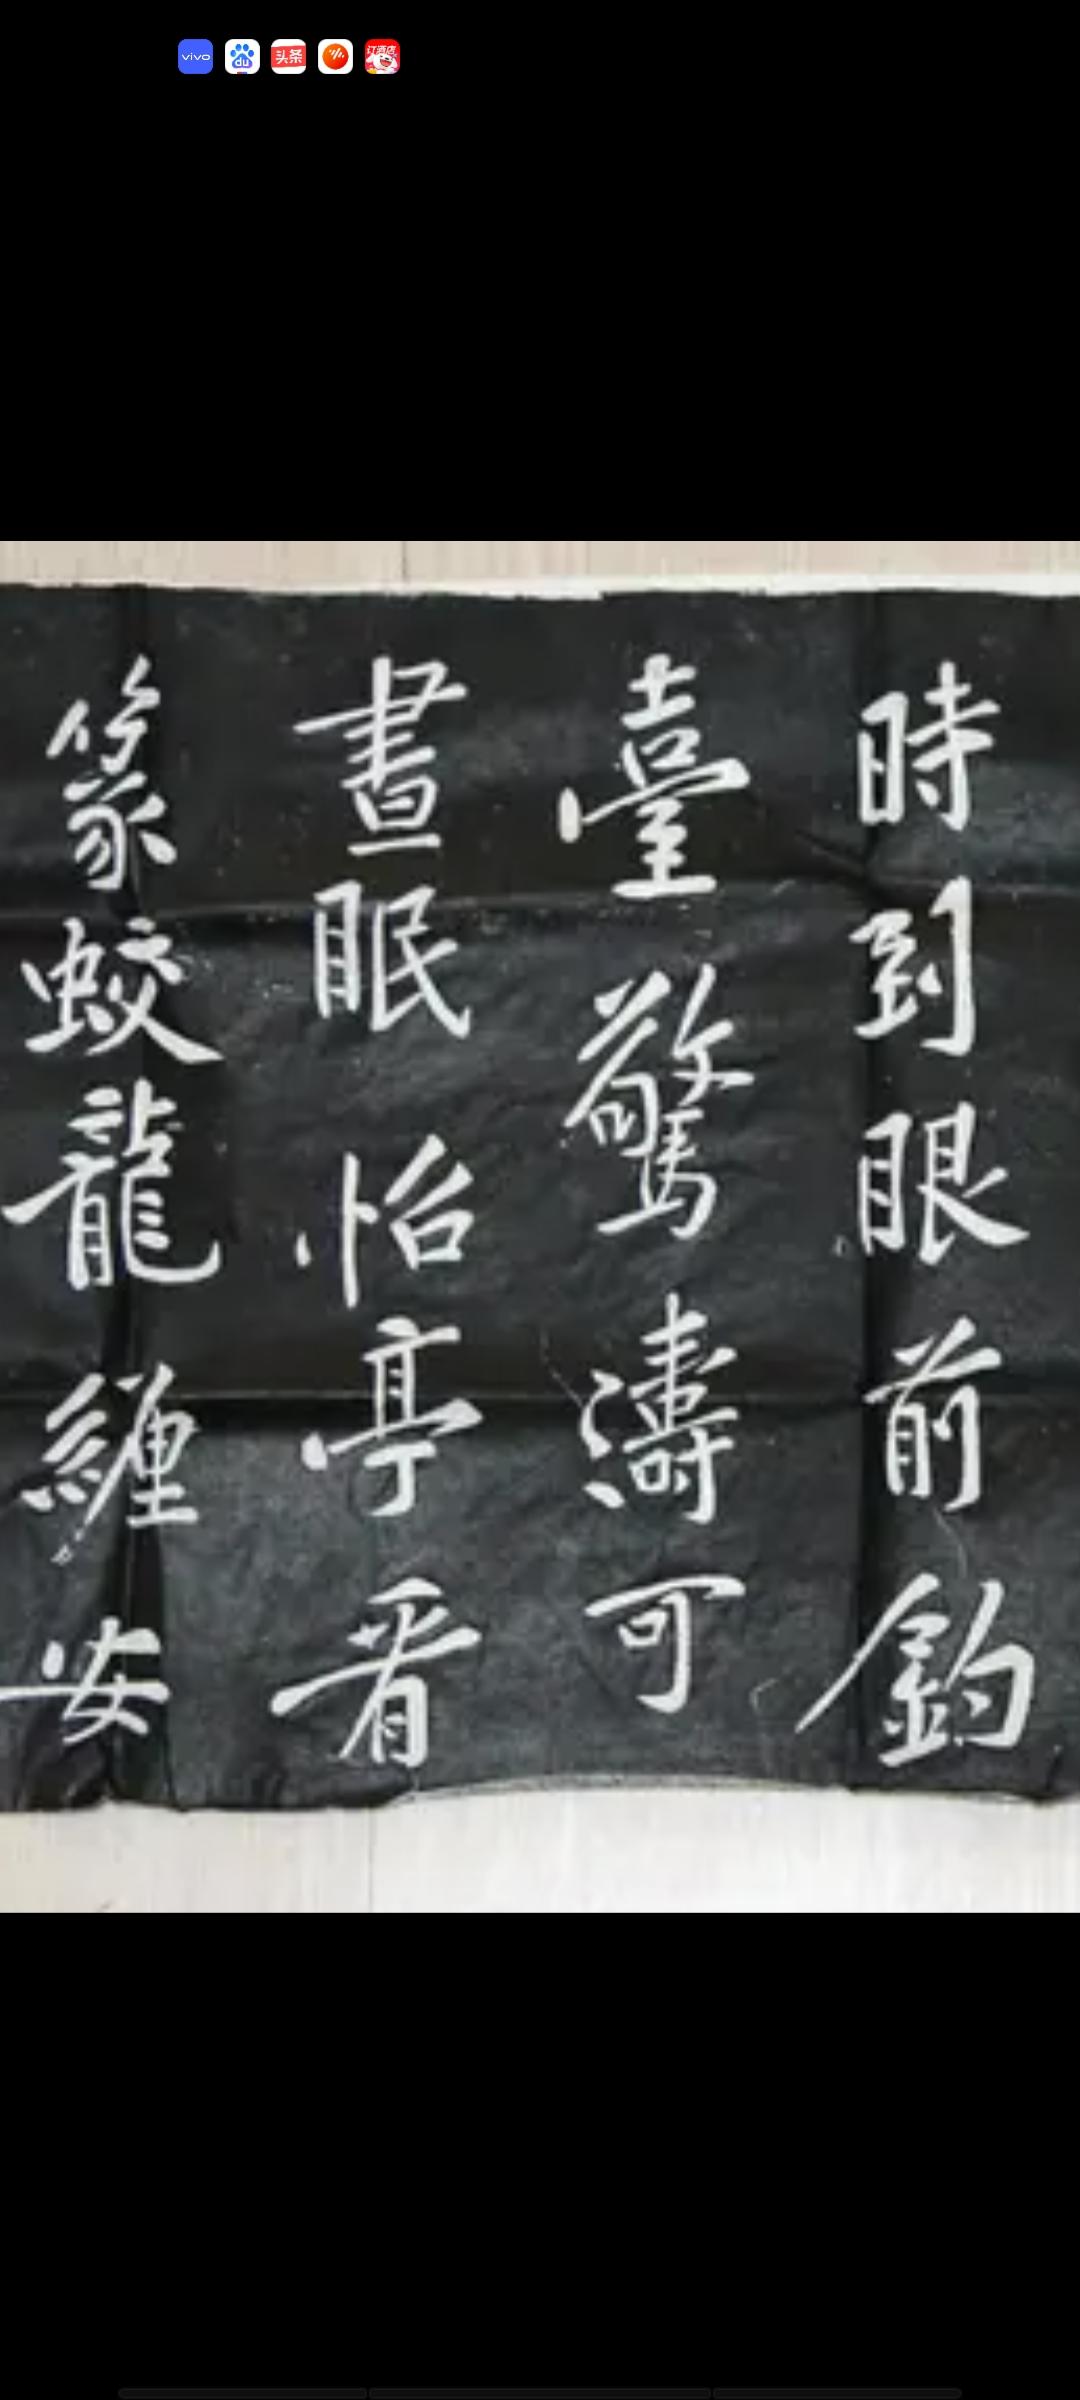 vivo
du
头条
订酒店
時到眼前釣
臺驚濤可
晝眠怡亭看
篆蛟龍纏安